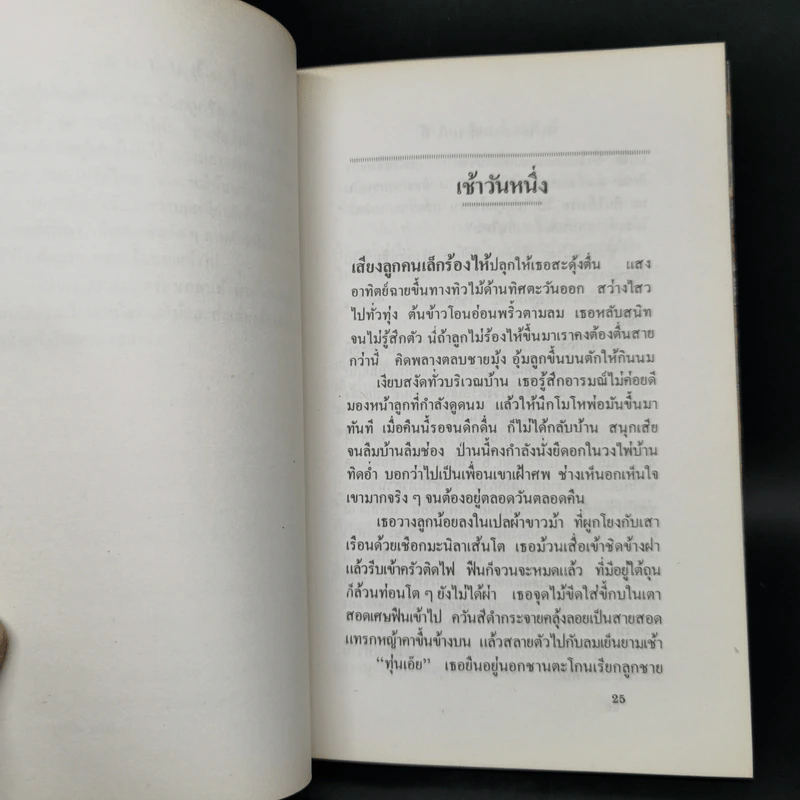 เช้าวันหนึ่ง
เสียงลูกคนเล็กร้องไห้ปลุกให้เธอสะดุ้งตื่น แสง
อาทิตย์ฉายขึ้นทางทิวไม้ด้านทิศตะวันออก สว่างไสว
ไปทั่วทุ่ง ต้นข้าวโอนอ่อนพริ้วตามลม เธอหลับสนิท
จนไม่รู้สึกตัว นี่ถ้าลูกไม่ร้องไห้ขึ้นมาเราคงต้องตื่นสาย
กว่านี้ คิดพลางตลบชายมุ้ง อุ้มลูกขึ้นบนตักให้กินนม
เงียบสงัดทั่วบริเวณบ้าน เธอรู้สึกอารมณ์ไม่ค่อยดี
มองหน้าลูกที่กำลังดูดนม แล้วให้นึกโมโหพ่อมันขึ้นมา
ทันที เมื่อคืนนี้รอจนดึกดื่น ก็ไม่ได้กลับบ้าน สนุกเสีย
จนลืมบ้านลืมช่อง ป่านนี้คงกำลังนั่งยืดอกในวงไพ่บ้าน
ทิดอ่ำ บอกว่าไปเป็นเพื่อนเขาเฝ้าศพ ช่างเห็นอกเห็นใจ
เขามากจริง ๆ จนต้องอยู่ตลอดวันตลอดคืน
เธอวางลูกน้อยลงในเปลผ้าขาวม้า ที่ผูกโยงกับเสา
เรือนด้วยเชือกมะนิลาเส้นโต เธอม้วนเสื่อเข้าชิดข้างฝา
แล้วรีบเข้าครัวติดไฟ ฟืนก็จวนจะหมดแล้ว ที่มีอยู่ใต้ถุน
ก็ล้วนท่อนโต ๆ ยังไม่ได้ผ่า เธอจุดไม้ขีดใส่ขี้กบในเตา
สอดเศษฟืนเข้าไป ควันสีดำกระจายคลุ้งลอยเป็นสายสอด
แทรกหญ้าคาขึ้นข้างบน แล้วสลายตัวไปกับลมเย็นยามเช้า
“ทุ่นเอ๊ย” เธอยืนอยู่นอกชานตะโกนเรียกลูกชาย
25